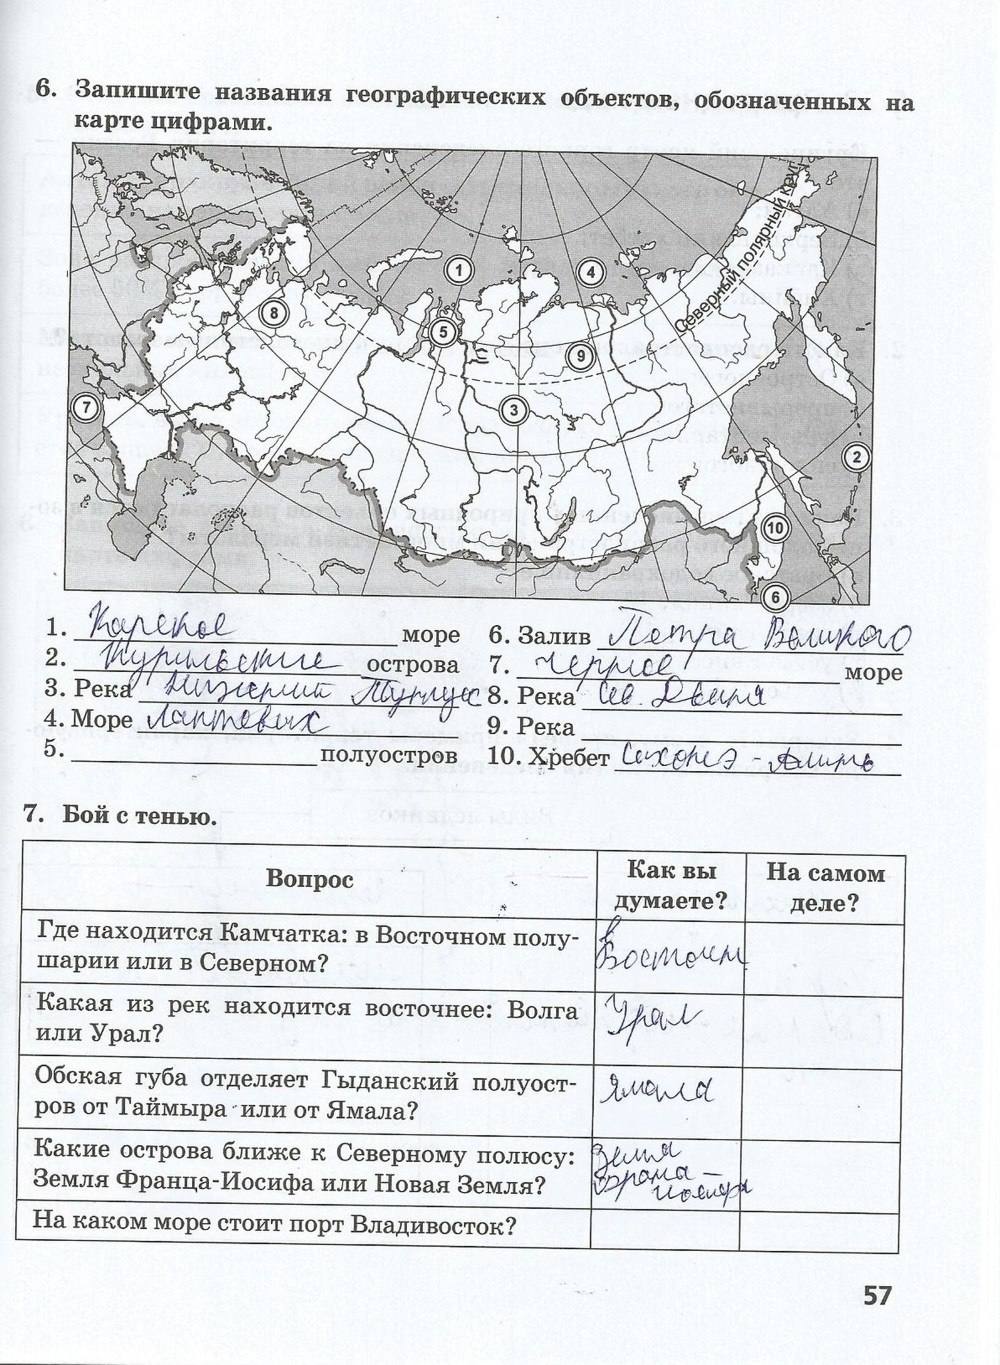 6. Запишите названия географических объектов, обозначенных на
карте цифрами.
Северный полярный круг
1
4
8
5
9
7
3
2
10
6
1. Карское море
2. Курильские острова
3. Река Нижний Тунгус
4. Море Лаптевых
5. полуостров
6. Залив Петра Великого
7. Черное море
8. Река Сев. Двина
9. Река
10. Хребет Сихотэ - Алинь
7. Бой с тенью.
Вопрос
Как вы
думаете?
На самом
деле?
Где находится Камчатка: в Восточном полу-
шарии или в Северном?
в
Восточн
Какая из рек находится восточнее: Волга
или Урал?
Урал
Обская губа отделяет Гыданский полуост-
ров от Таймыра или от Ямала?
Ямала
Какие острова ближе к Северному полюсу:
Земля Франца-Иосифа или Новая Земля?
Земля
Франа -
Иосифа
На каком море стоит порт Владивосток?
57